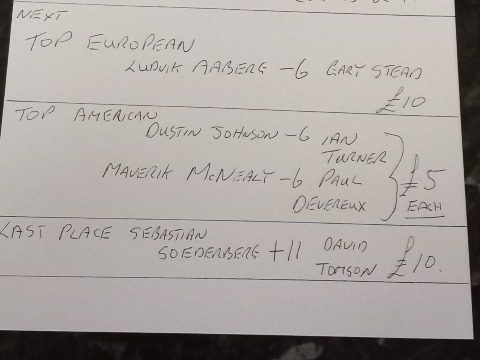 NEXT
TOP EUROPEAN
LUDVIK AABERG -6 GARY STEAD
£10
TOP AMERICAN
DUSTIN JOHNSON -6 IAN
TURNER
MAVERIK McNEALY -6 PAUL
DEVEREUX
£5
EACH
LAST PLACE SEBASTIAN
SOEDERBERG +11 DAVID
TOMSON £10.